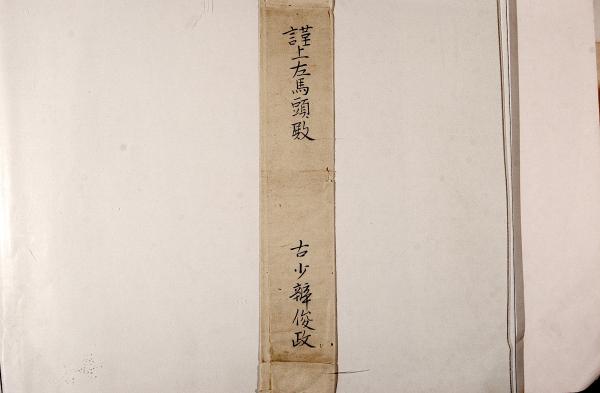 謹上左馬頭殿
右少辨俊政